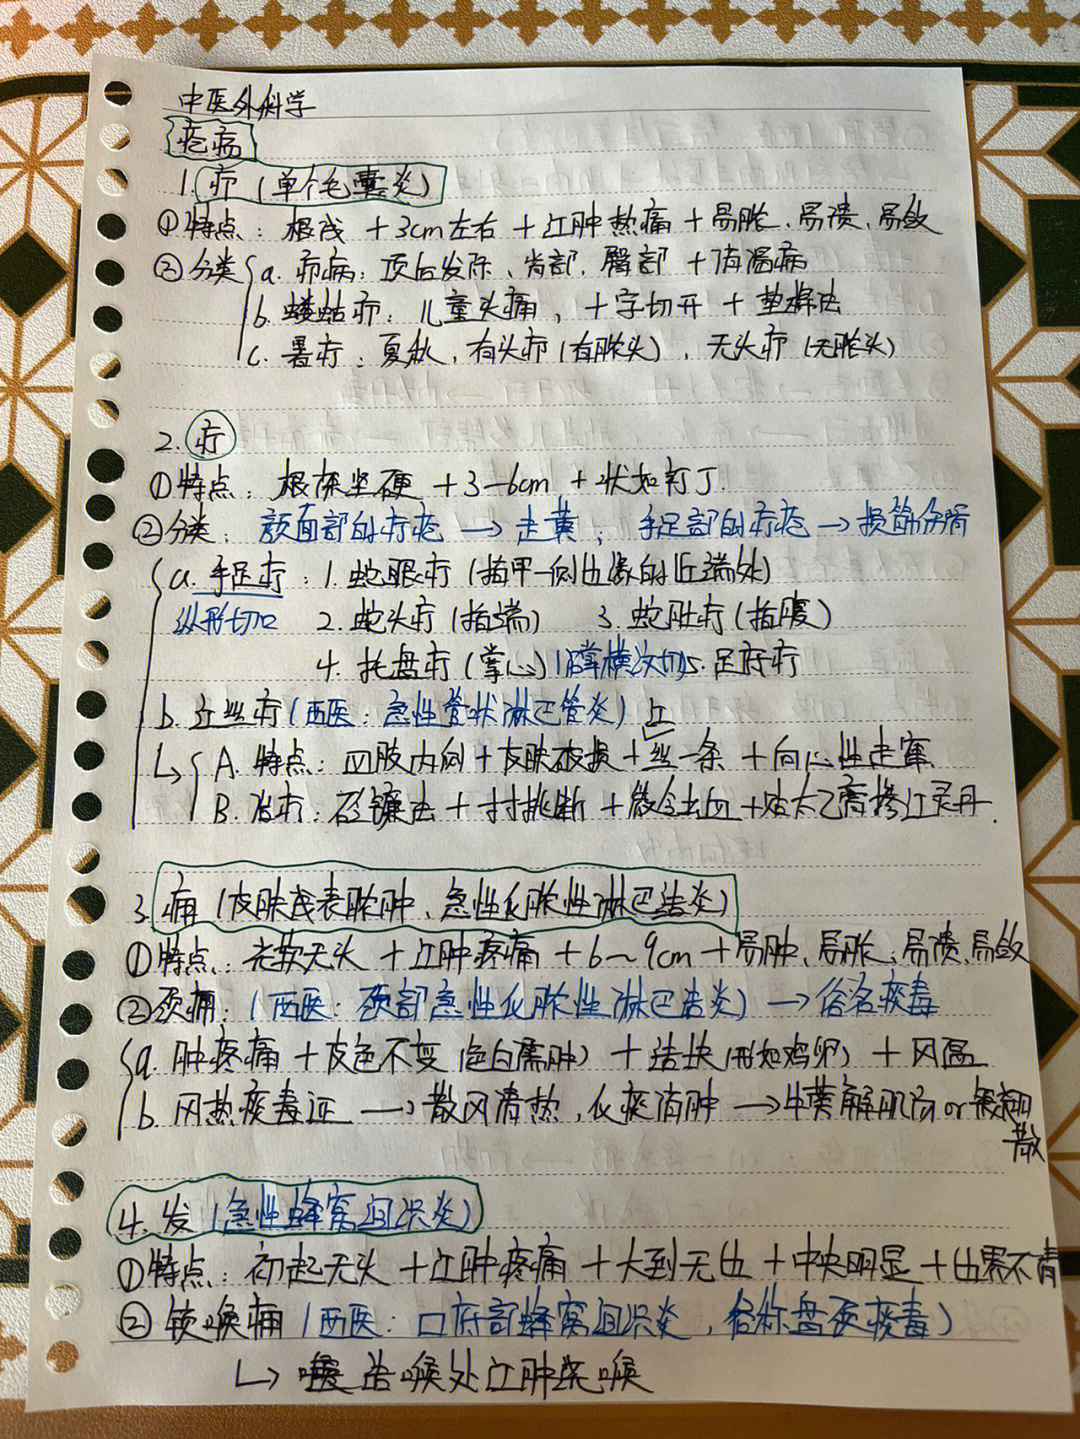 中医外科学
疮疡
1. 疖 (单个毛囊炎)
①特点: 根浅 + 3cm左右 + 红肿热痛 + 易脓、易溃、易敛
②分类 a. 疖病: 项后发际、背部、臀部 + 消渴病
b. 蝼蛄疖: 儿童头痛, 十字切开 + 垫棉法
c. 暑疖: 夏秋, 有头疖 (有脓头), 无头疖 (无脓头)
2. 疔
①特点: 根深坚硬 + 3-6cm + 状如钉丁
②分类: 颜面部的疔疮 → 走黄; 手足部的疔疮 → 损筋伤骨
a. 手足疔: 1. 蛇眼疔 (指甲一侧边缘的近端处)
纵形切口 2. 蛇头疔 (指端) 3. 蛇肚疔 (指腹)
4. 托盘疔 (掌心) 5. 足底疔
b. 红丝疔 (西医: 急性管状淋巴管炎) 红
↳ A. 特点: 四肢内侧 + 皮肤破损 + 丝一条 + 向心性走窜
B. 治疗: 砭镰法 + 寸寸挑断 + 微令出血 + 贴太乙膏掺红灵丹.
3. 痈 (皮肤浅表脓肿、急性化脓性淋巴结炎)
①特点: 光软无头 + 红肿疼痛 + 6~9cm + 易肿、易脓、易溃、易敛
②颈痈: (西医: 颈部急性化脓性淋巴结炎) → 俗名痰毒
a. 肿疼痛 + 皮色不变 (色白濡肿) + 结块 (形如鸡卵) + 风温
b. 风热痰毒证 → 散风清热, 化痰消肿 → 牛蒡解肌汤 or 银翘
散
4. 发 (急性蜂窝组织炎)
①特点: 初起无头 + 红肿疼痛 + 大到无边 + 中央明显 + 边界不清
② 锁喉痈 (西医: 口底部蜂窝组织炎, 俗称盘颈痰毒)
↳ 结喉处红肿绕喉